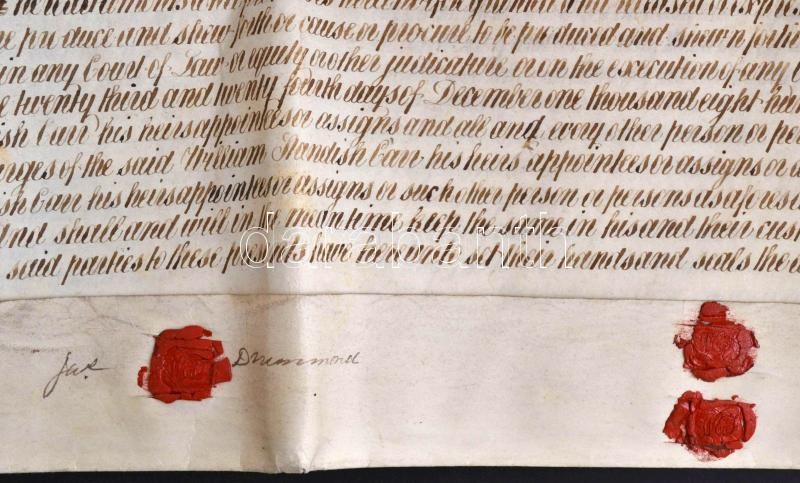 produce and shew forth or cause or procure to be produced and shewn forth
in any Court of Law or equity or other judicature or on the execution of any
twenty third and twenty fourth days of December one thousand eight
Carr his heirs appointees or assigns and all and every other person or
of the said William Standish Carr his heirs appointees or assigns or
Carr his heirs appointees or assigns or such other person or persons as
shall and will in the mean time keep the same in his and their
said parties to these presents have hereunto set their hands and seals the
darabanth
Jas Drummond